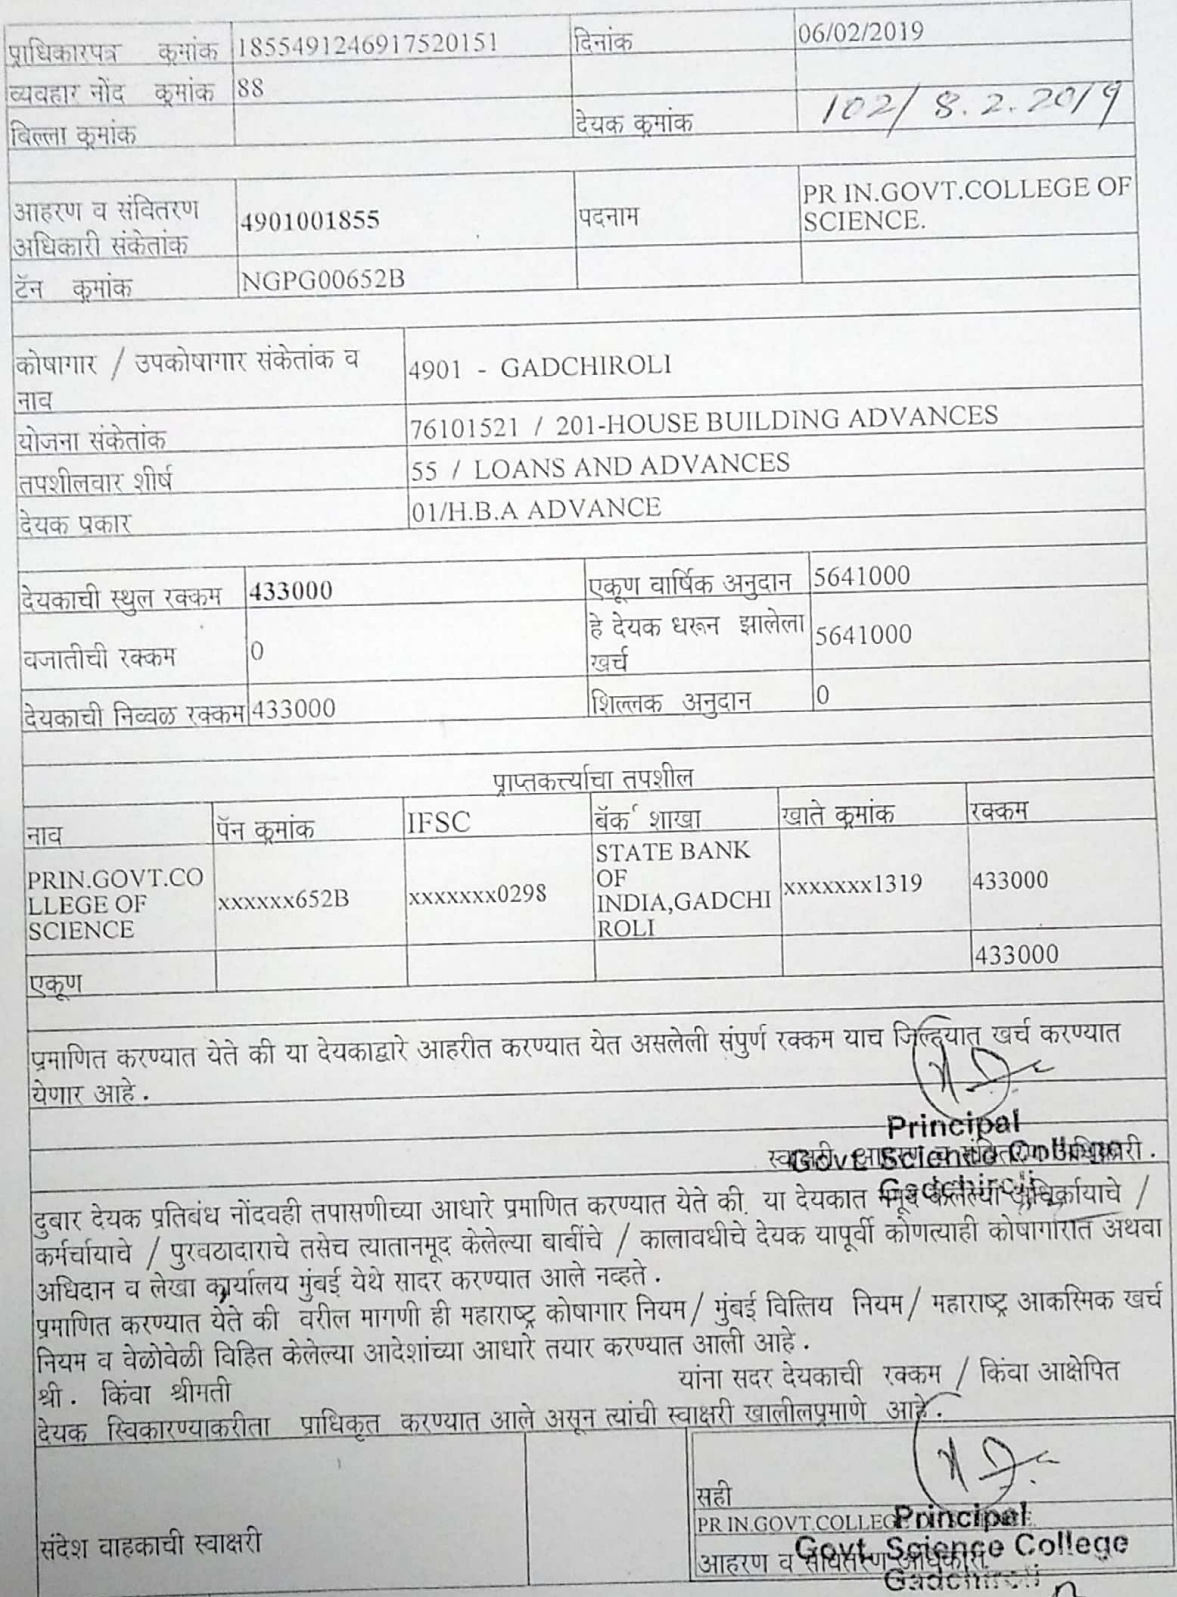 प्राधिकारपत्र क्रमांक 1855491246917520151 दिनांक 06/02/2019
व्यवहार नोंद क्रमांक 88
बिल्ला क्रमांक देयक क्रमांक 102/ 8.2.2019
आहरण व संवितरण
अधिकारी संकेतांक 4901001855 पदनाम PR IN.GOVT.COLLEGE OF
SCIENCE.
टॅन क्रमांक NGPG00652B
कोषागार / उपकोषागार संकेतांक व
नाव 4901 - GADCHIROLI
योजना संकेतांक 76101521 / 201-HOUSE BUILDING ADVANCES
तपशीलवार शीर्ष 55 / LOANS AND ADVANCES
देयक प्रकार 01/H.B.A ADVANCE
देयकाची स्थुल रक्कम 433000 एकूण वार्षिक अनुदान 5641000
वजातीची रक्कम 0 हे देयक धरून झालेला
खर्च 5641000
देयकाची निव्वळ रक्कम 433000 शिल्लक अनुदान 0
प्राप्तकर्त्याचा तपशील
नाव पॅन क्रमांक IFSC बॅक शाखा खाते क्रमांक रक्कम
PRIN.GOVT.CO
LLEGE OF
SCIENCE
xxxxxx652B
xxxxxxx0298
STATE BANK
OF
INDIA,GADCHI
ROLI
xxxxxxx1319
433000
एकूण 433000
प्रमाणित करण्यात येते की या देयकाद्वारे आहरीत करण्यात येत असलेली संपुर्ण रक्कम याच जिल्हयात खर्च करण्यात
येणार आहे.
Principal
Govt. Science College
Gadchiroli
दुबार देयक प्रतिबंध नोंदवही तपासणीच्या आधारे प्रमाणित करण्यात येते की. या देयकात नमूद केलेल्या /
कर्मचार्याचे / पुरवठादाराचे तसेच त्यातानमूद केलेल्या बाबींचे / कालावधीचे देयक यापूर्वी कोणत्याही कोषागारात अथवा
अधिदान व लेखा कार्यालय मुंबई येथे सादर करण्यात आले नव्हते.
प्रमाणित करण्यात येते की वरील मागणी ही महाराष्ट्र कोषागार नियम/ मुंबई वित्तिय नियम/ महाराष्ट्र आकस्मिक खर्च
नियम व वेळोवेळी विहित केलेल्या आदेशांच्या आधारे तयार करण्यात आली आहे.
श्री. किंवा श्रीमती यांना सदर देयकाची रक्कम / किंवा आक्षेपित
देयक स्विकारण्याकरीता प्राधिकृत करण्यात आले असून त्यांची स्वाक्षरी खालीलप्रमाणे आहे.
संदेश वाहकाची स्वाक्षरी
सही
PR IN.GOVT.COLLEG
Principal
आहरण व संवितरण अधिकारी
Govt. Science College
Gadchiroli